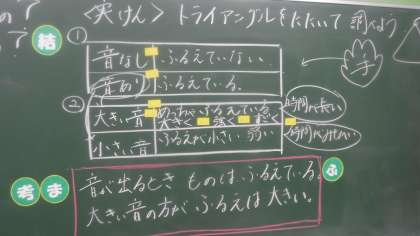 の?
〈実けん〉トライアングルをたたいて 調べよう
?
結
①
音なし ふるえていない。
音あり ふるえている。
手
②
大きい音 めっちゃふるえている 時間が長い
大きく 強く
小さい音 ふるえが小さい 弱い 時間がみじかい
考 ま
音が出るとき ものは ふるえている。
大きい音の方が ふるえは 大きい。
ふ